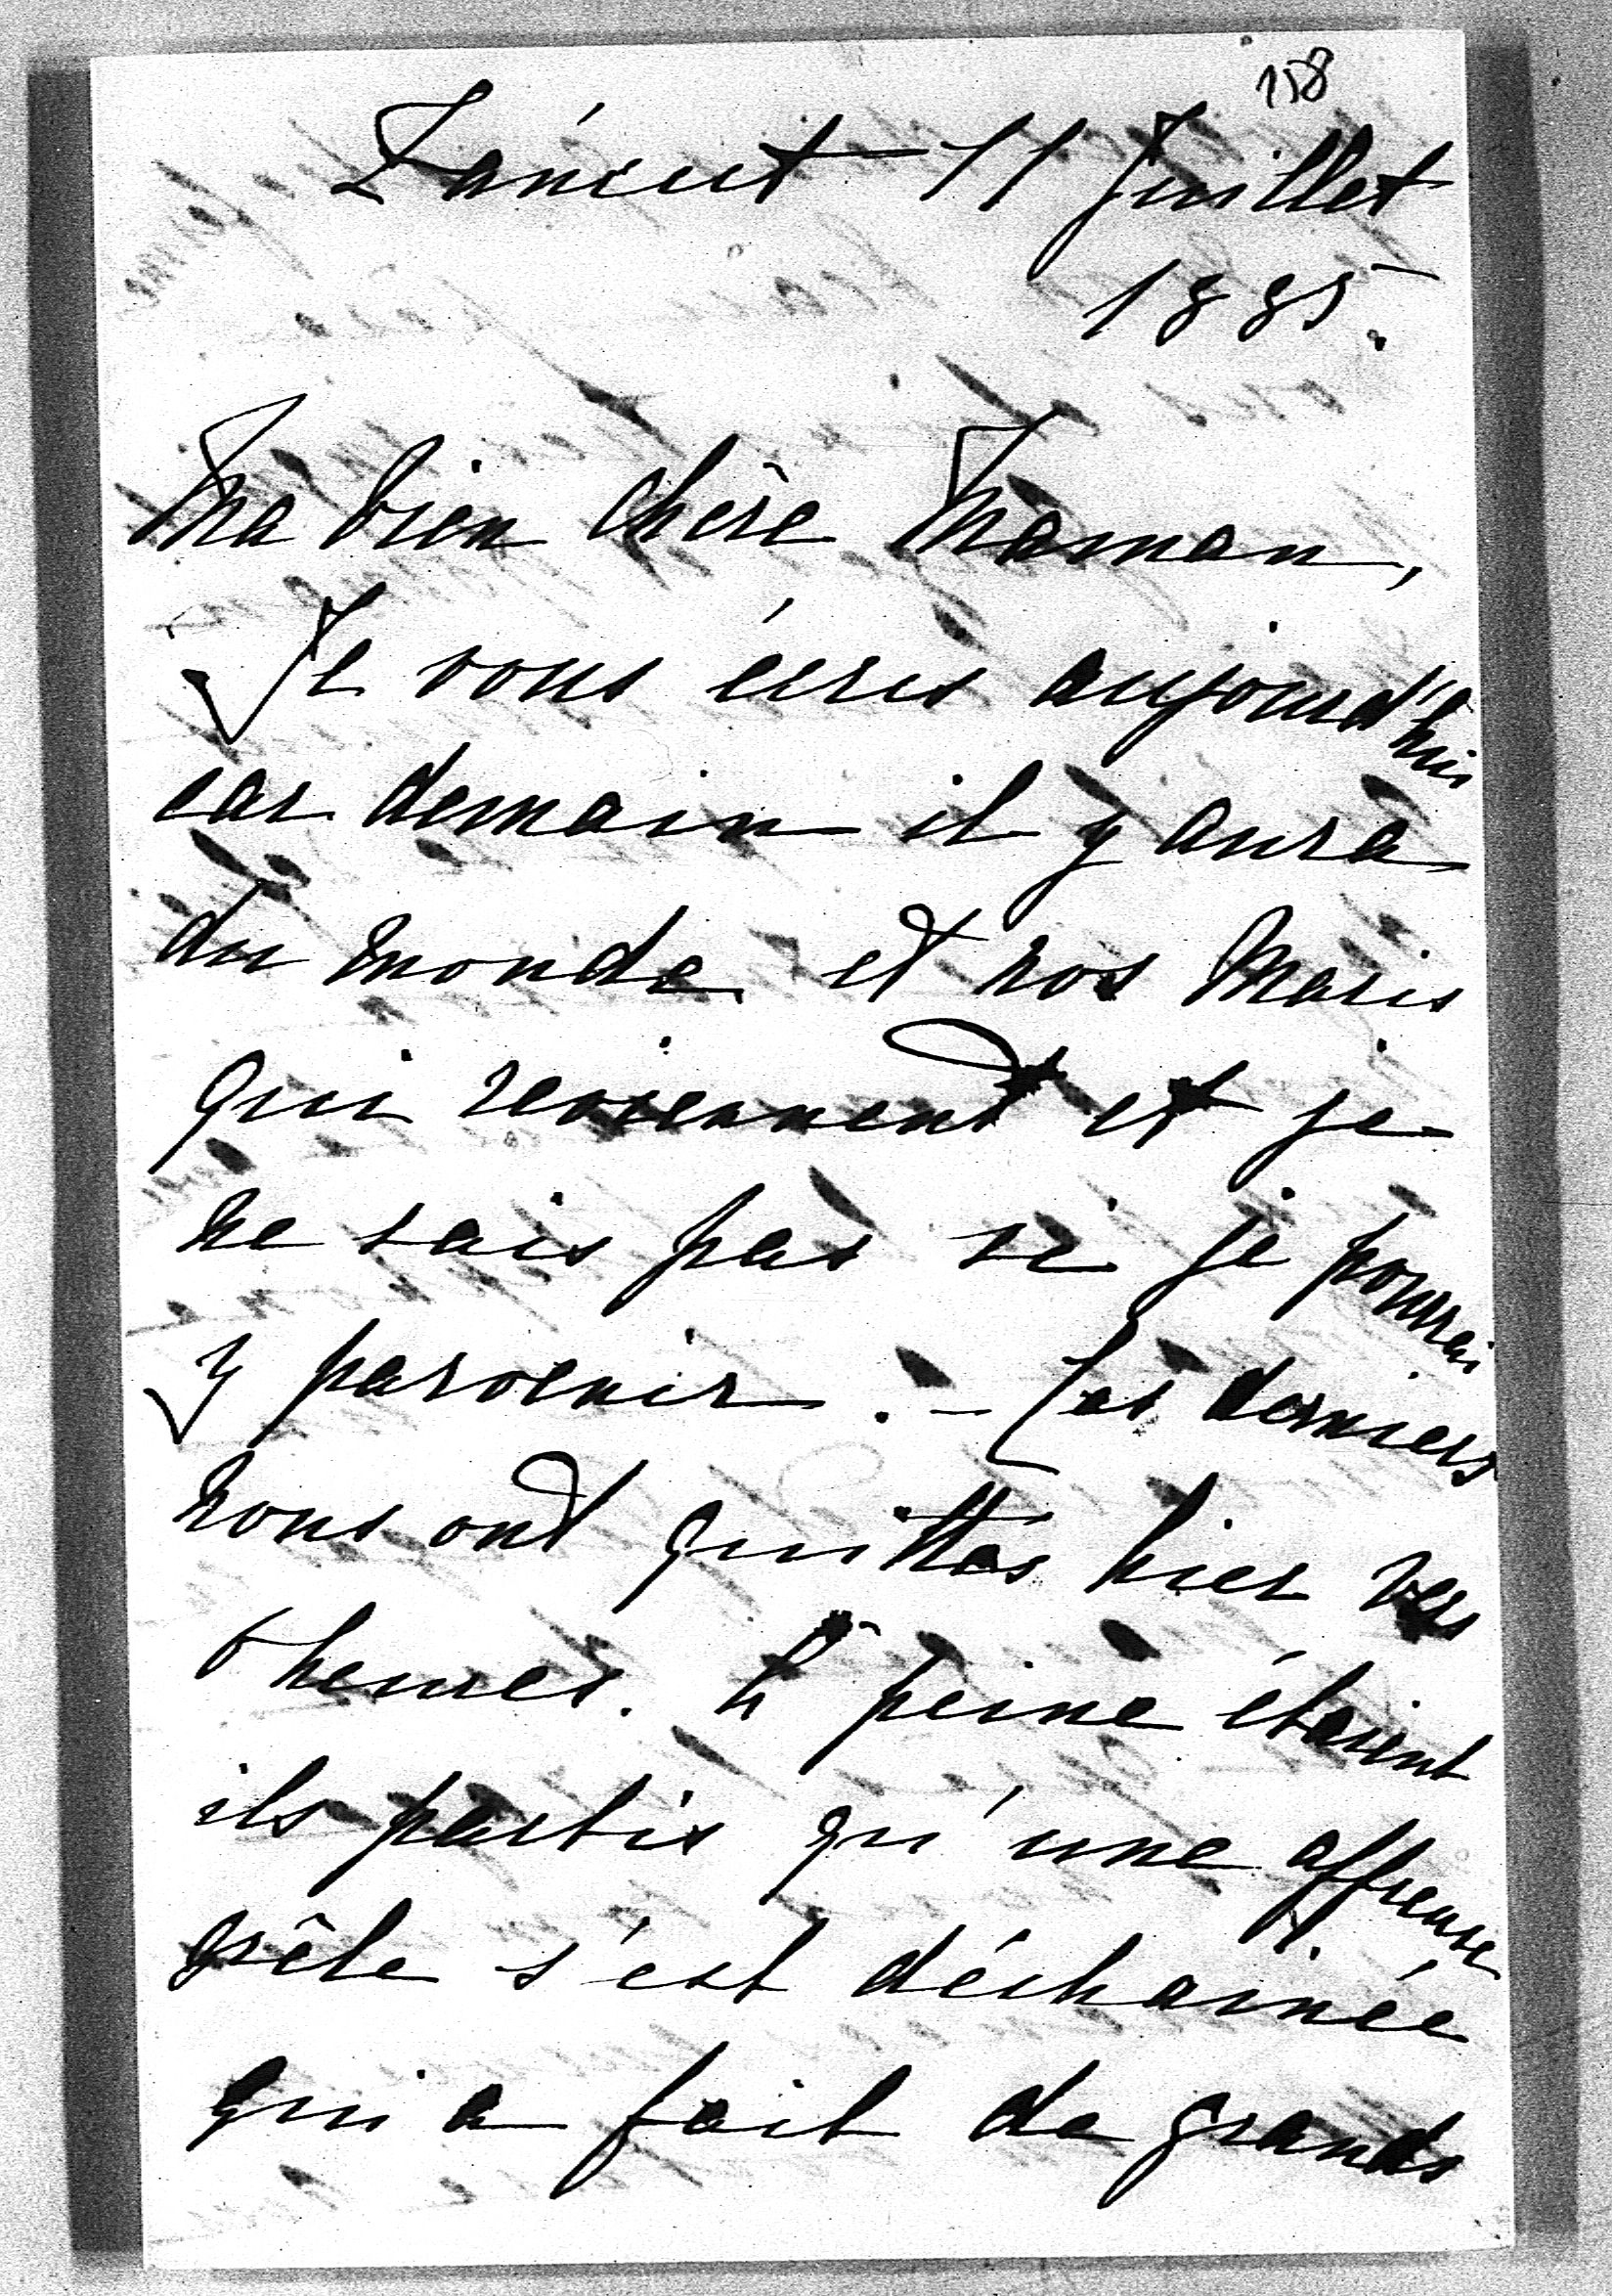 158
Łańcut 11 Juillet
1885.
Ma bien chère Maman,
Je vous écris aujourd'hui
car demain il y aura
du monde et nos Maris
qui reviennent et je
ne sais pas si je pourrai
y parvenir. - Ces derniers
nous ont quittés hier vers
6 heures. A peine étaient
ils partis qu'une affreuse
grêle s'est déchainée
qui a fait de grands